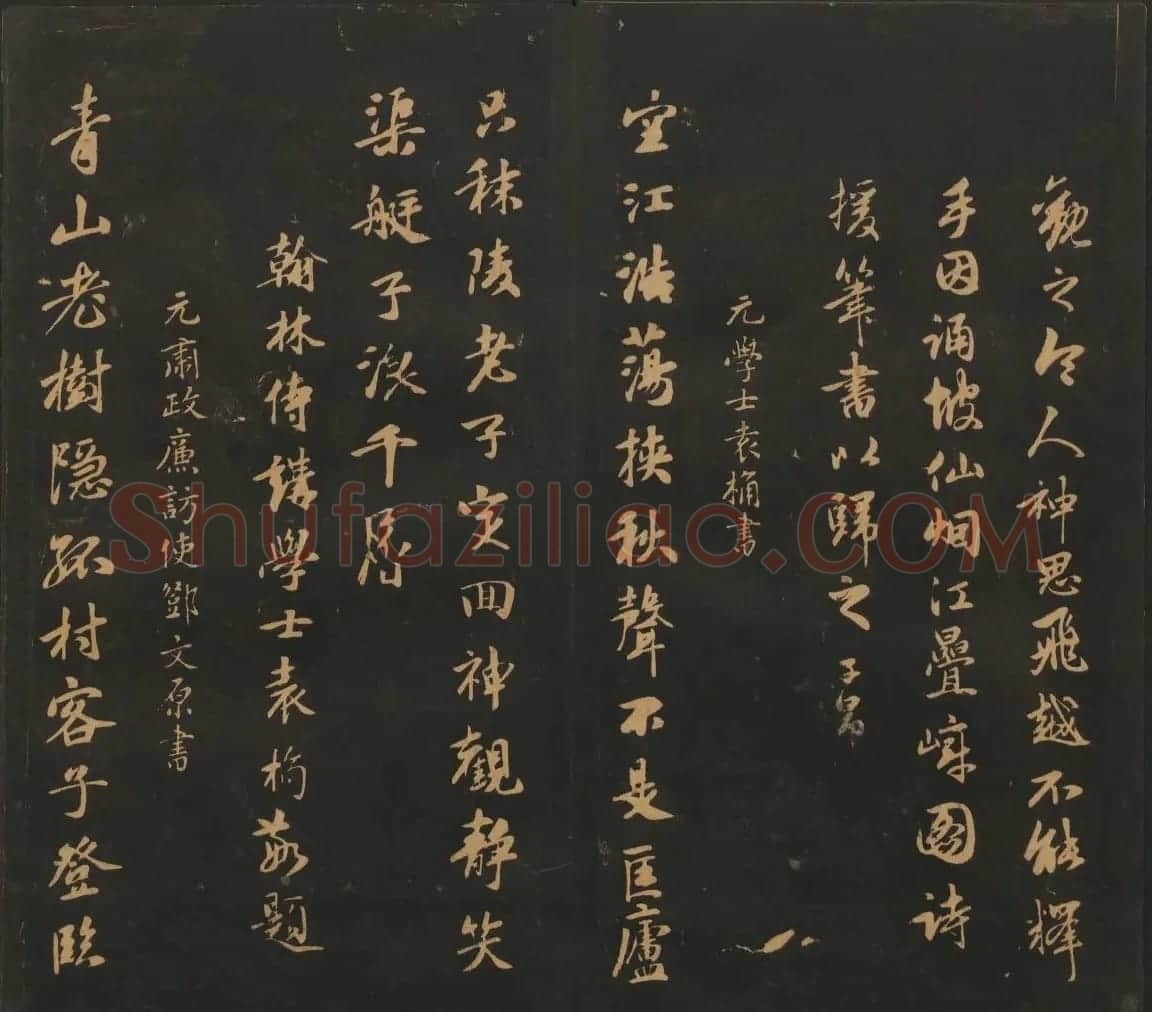 觀之令人神思飛越不能釋
手因誦坡仙烟江疊嶂圖詩
援筆書以歸之 子昂
元學士袁桷書
空江浩蕩挾秋聲不是匡廬
只秣陵老子定回神觀静笑
渠艇子浪千層
翰林侍講學士袁桷敬題
元肅政廉訪使鄧文原書
青山老樹隱孤村客子登臨
Shufaziliao.COM